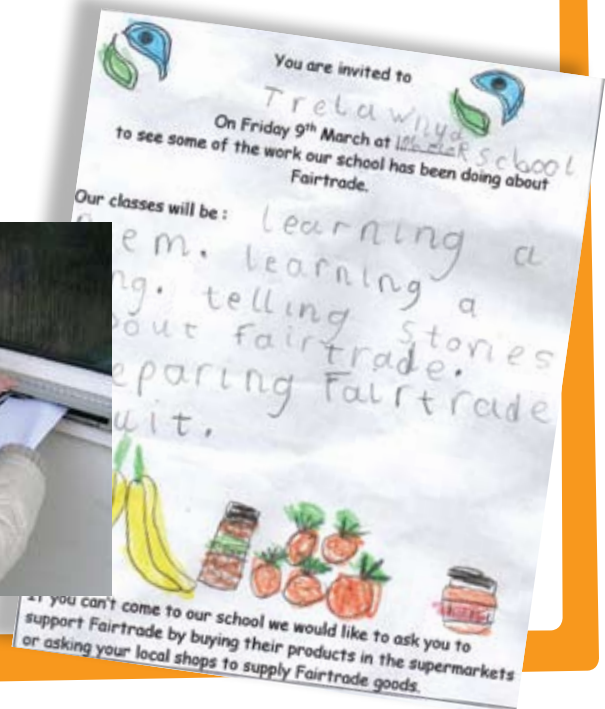 You are invited to
Trelawnyd School
On Friday 9th March at
to see some of the work our school has been doing about
Fairtrade.
Our classes will be : learning a
em. learning a
ng. telling stories
out fairtrade.
eparing Fairtrade
uit.
If you can't come to our school we would like to ask you to
support Fairtrade by buying their products in the supermarkets
or asking your local shops to supply Fairtrade goods.